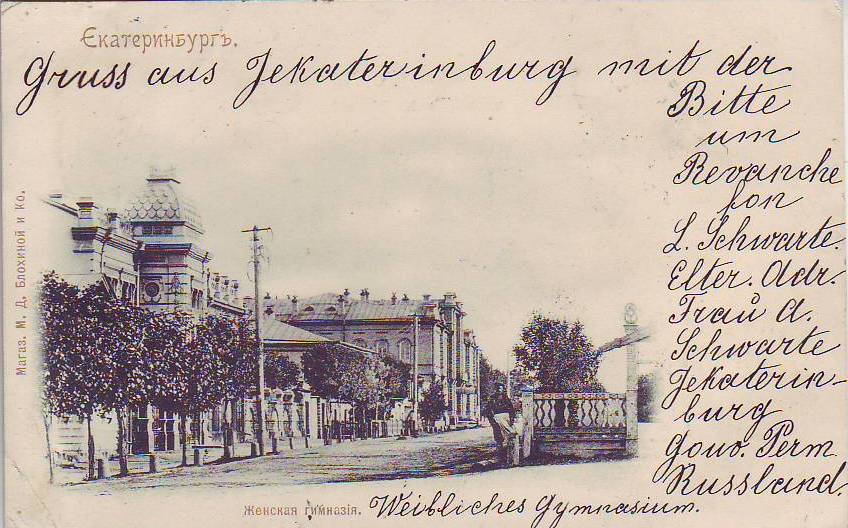 Екатеринбургъ.
Gruss aus Jekaterinburg mit der
Bitte
um
Revanche
fon
L. Schwarte.
Elter. Adr.
Frau A.
Schwarte
Jekaterin-
burg
Gouv. Perm
Russland.
Магаз. М. Д. Блохиной и Ко.
Женская гимназія. Weibliches Gymnasium.